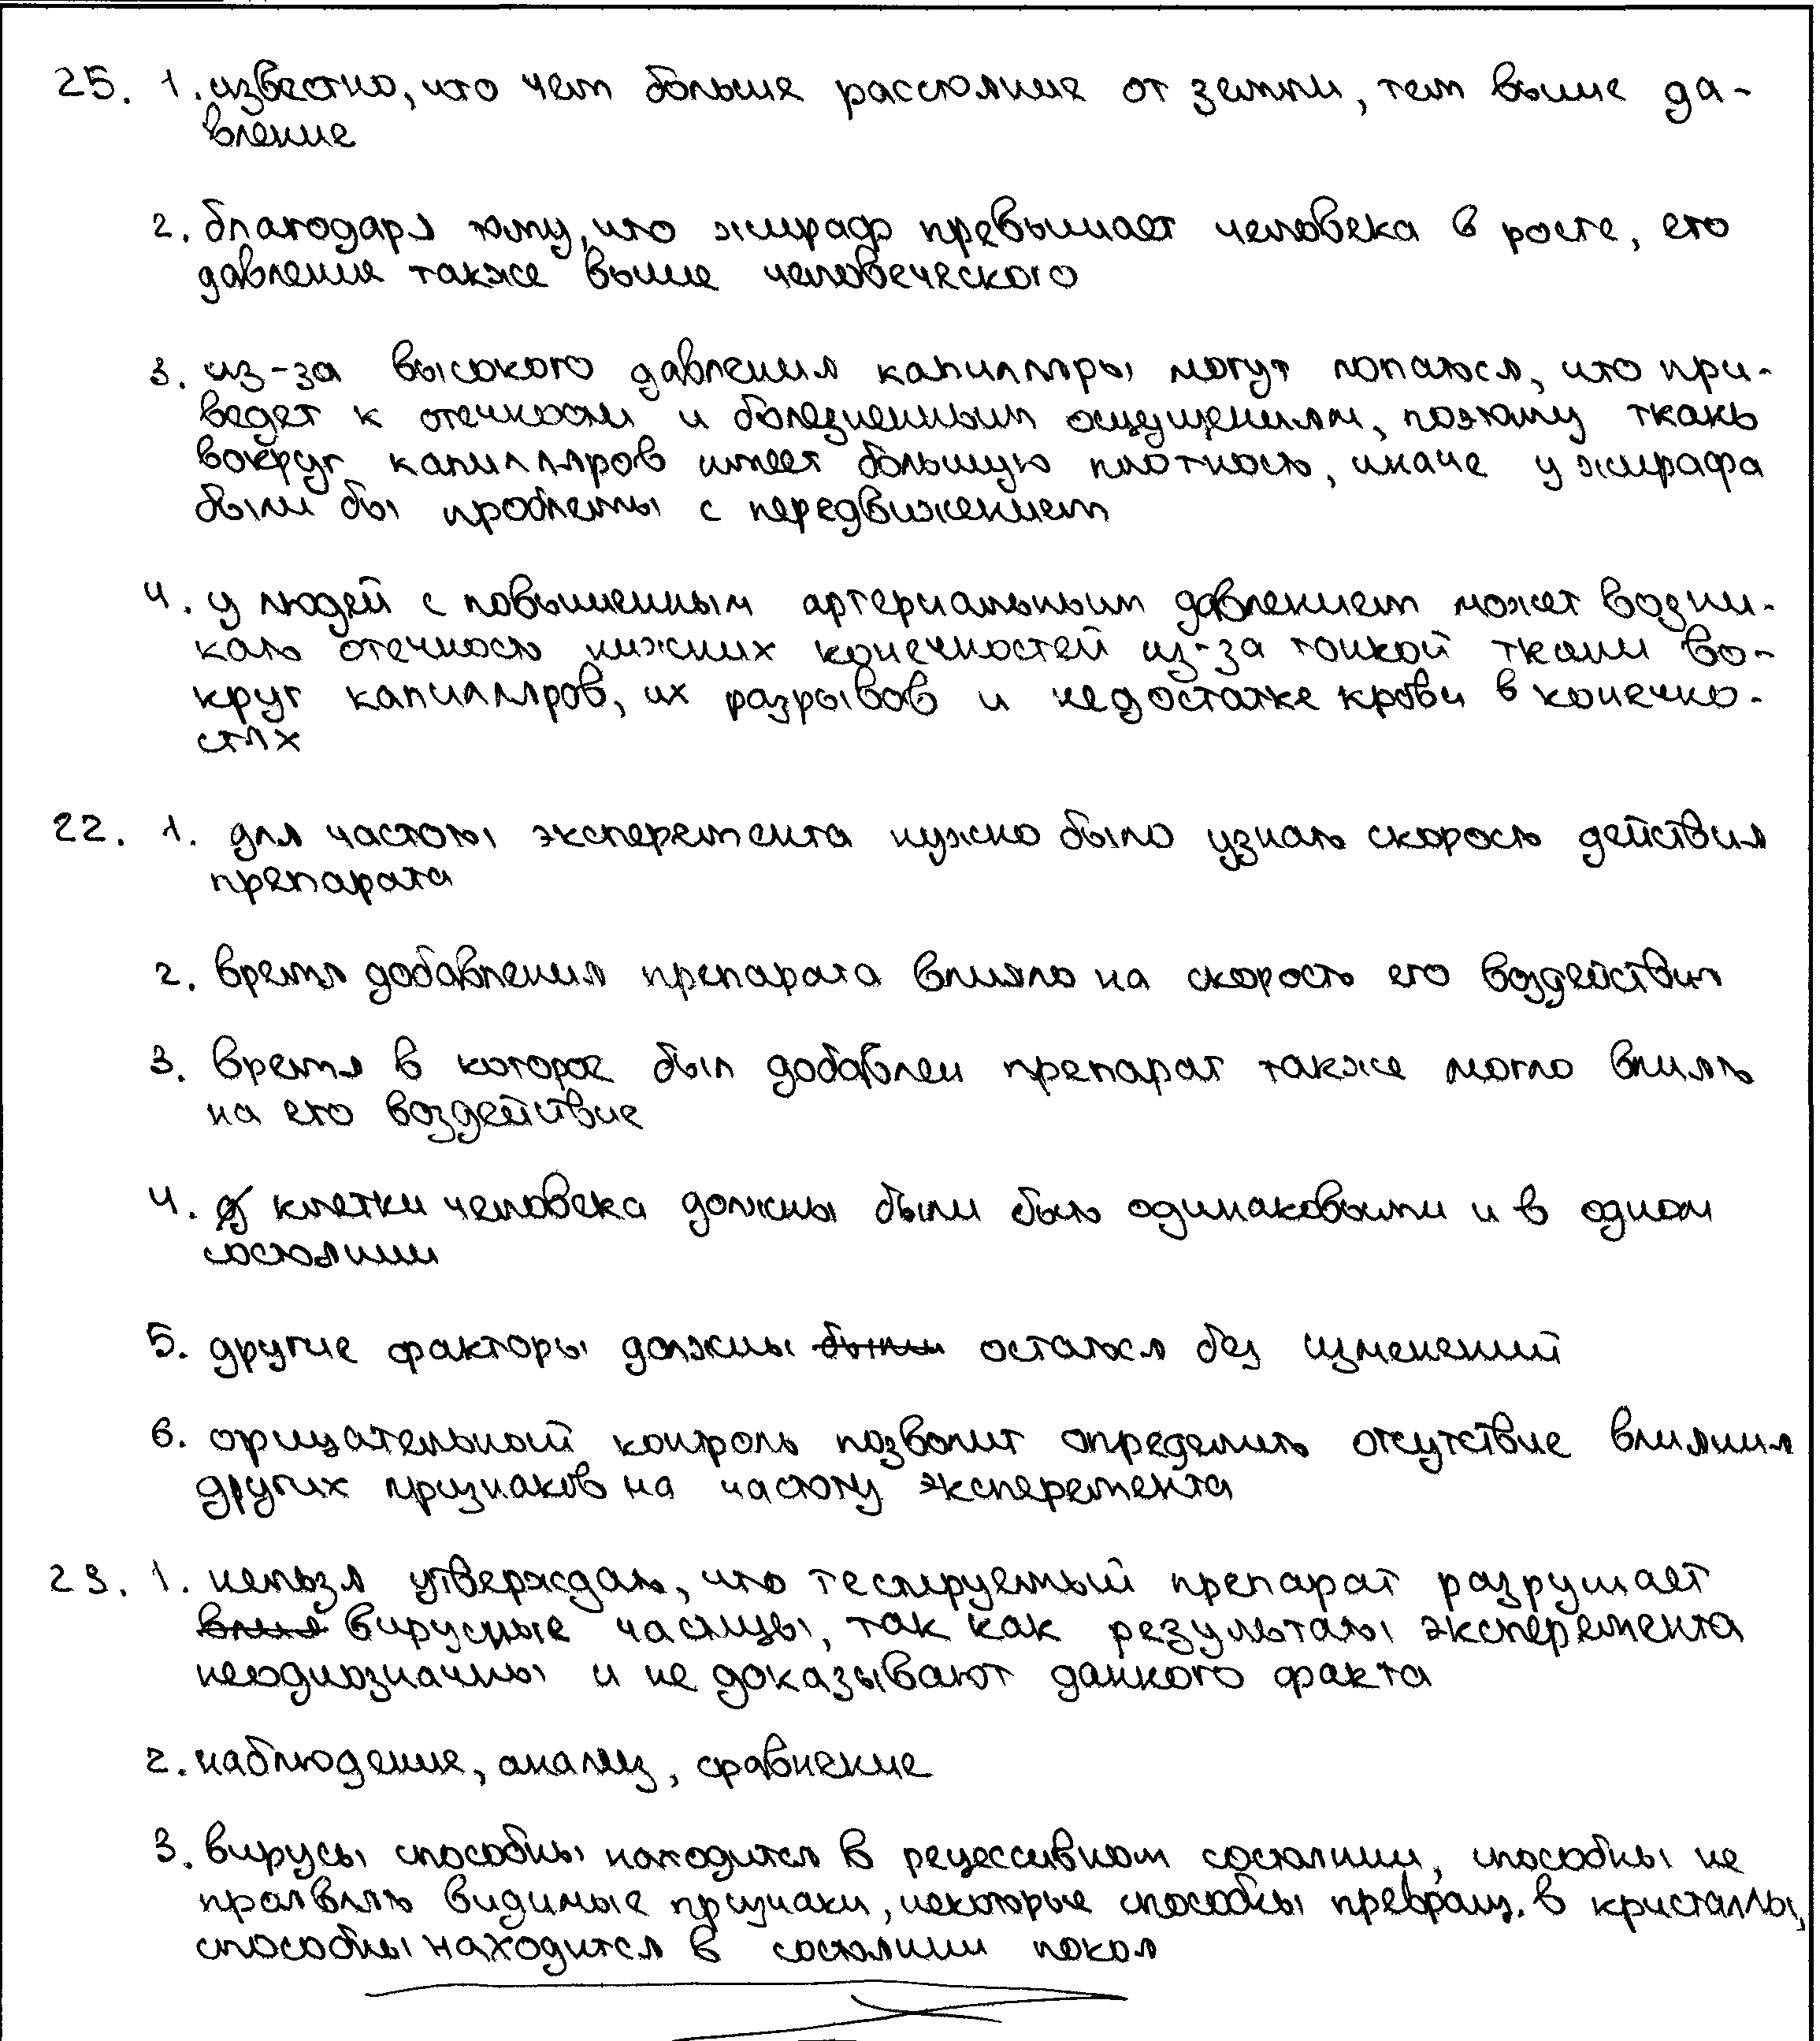 25. 1. известно, что чем больше расстояние от земли, тем выше да-
вление
2. благодаря тому, что жираф превышает человека в росте, его
давление также выше человеческого
3. из-за высокого давления капилляры могут лопаться, что при-
ведет к отечности и болезненным ощущениям, поэтому ткань
вокруг капилляров имеет большую плотность, иначе у жирафа
были бы проблемы с передвижением
4. у людей с повышенным артериальным давлением может возни-
кать отечность нижних конечностей из-за тонкой ткани во-
круг капилляров, их разрывов и недостатке крови в конечно-
стях
22. 1. для частоты эксперемента нужно было узнать скорость действия
препарата
2. время добавления препарата влияло на скорость его воздействия
3. время в которое был добавлен препарат также могло влиять
на его воздействие
4. клетки человека должны были быть одинаковыми и в одном
состоянии
5. другие факторы должны были остаться без изменений
6. отрицательный контроль позволит определить отсутствие влияния
других признаков на частоту эксперемента
23. 1. нельзя утверждать, что тестируемый препарат разрушает
вирусные частицы, так как результаты эксперемента
неоднозначны и не доказывают данного факта
2. наблюдение, анализ, сравнение
3. вирусы способны находится в рецессивном состоянии, способны не
проявлять видимые признаки, некоторые способны превращ. в кристаллы,
способны находится в состоянии покоя